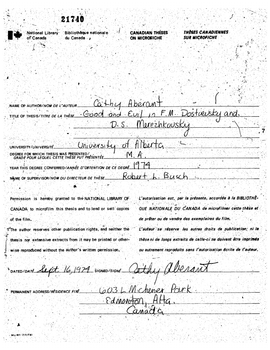 21740
National Library of Canada
Bibliothèque nationale du Canada
CANADIAN THESES ON MICROFICHE
THÈSES CANADIENNES SUR MICROFICHE
NAME OF AUTHOR/NOM DE L'AUTEUR Cathy Aberant
TITLE OF THESIS/TITRE DE LA THÈSE Good and Evil in F.M. Dostoevsky and
D.S. Merezhkovsky
UNIVERSITY/UNIVERSITÉ University of Alberta
DEGREE FOR WHICH THESIS WAS PRESENTED/
GRADE POUR LEQUEL CETTE THÈSE FUT PRÉSENTÉE M.A.
YEAR THIS DEGREE CONFERRED/ANNÉE D'OBTENTION DE CE DEGRÉ 1974
NAME OF SUPERVISOR/NOM DU DIRECTEUR DE THÈSE Robert L. Busch
Permission is hereby granted to the NATIONAL LIBRARY OF
CANADA to microfilm this thesis and to lend or sell copies
of the film.
The author reserves other publication rights, and neither the
thesis nor extensive extracts from it may be printed or other-
wise reproduced without the author's written permission.
L'autorisation est, par la présente, accordée à la BIBLIOTHÈ-
QUE NATIONALE DU CANADA de microfilmer cette thèse et
de prêter ou de vendre des exemplaires du film.
L'auteur se réserve les autres droits de publication; ni la
thèse ni de longs extraits de celle-ci ne doivent être imprimés
ou autrement reproduits sans l'autorisation écrite de l'auteur.
DATED/DATÉ Sept 16, 1974 SIGNED/SIGNÉ Cathy Aberant
PERMANENT ADDRESS/RÉSIDENCE FIXE 603 L Michener Park
Edmonton, Alta.
Canada